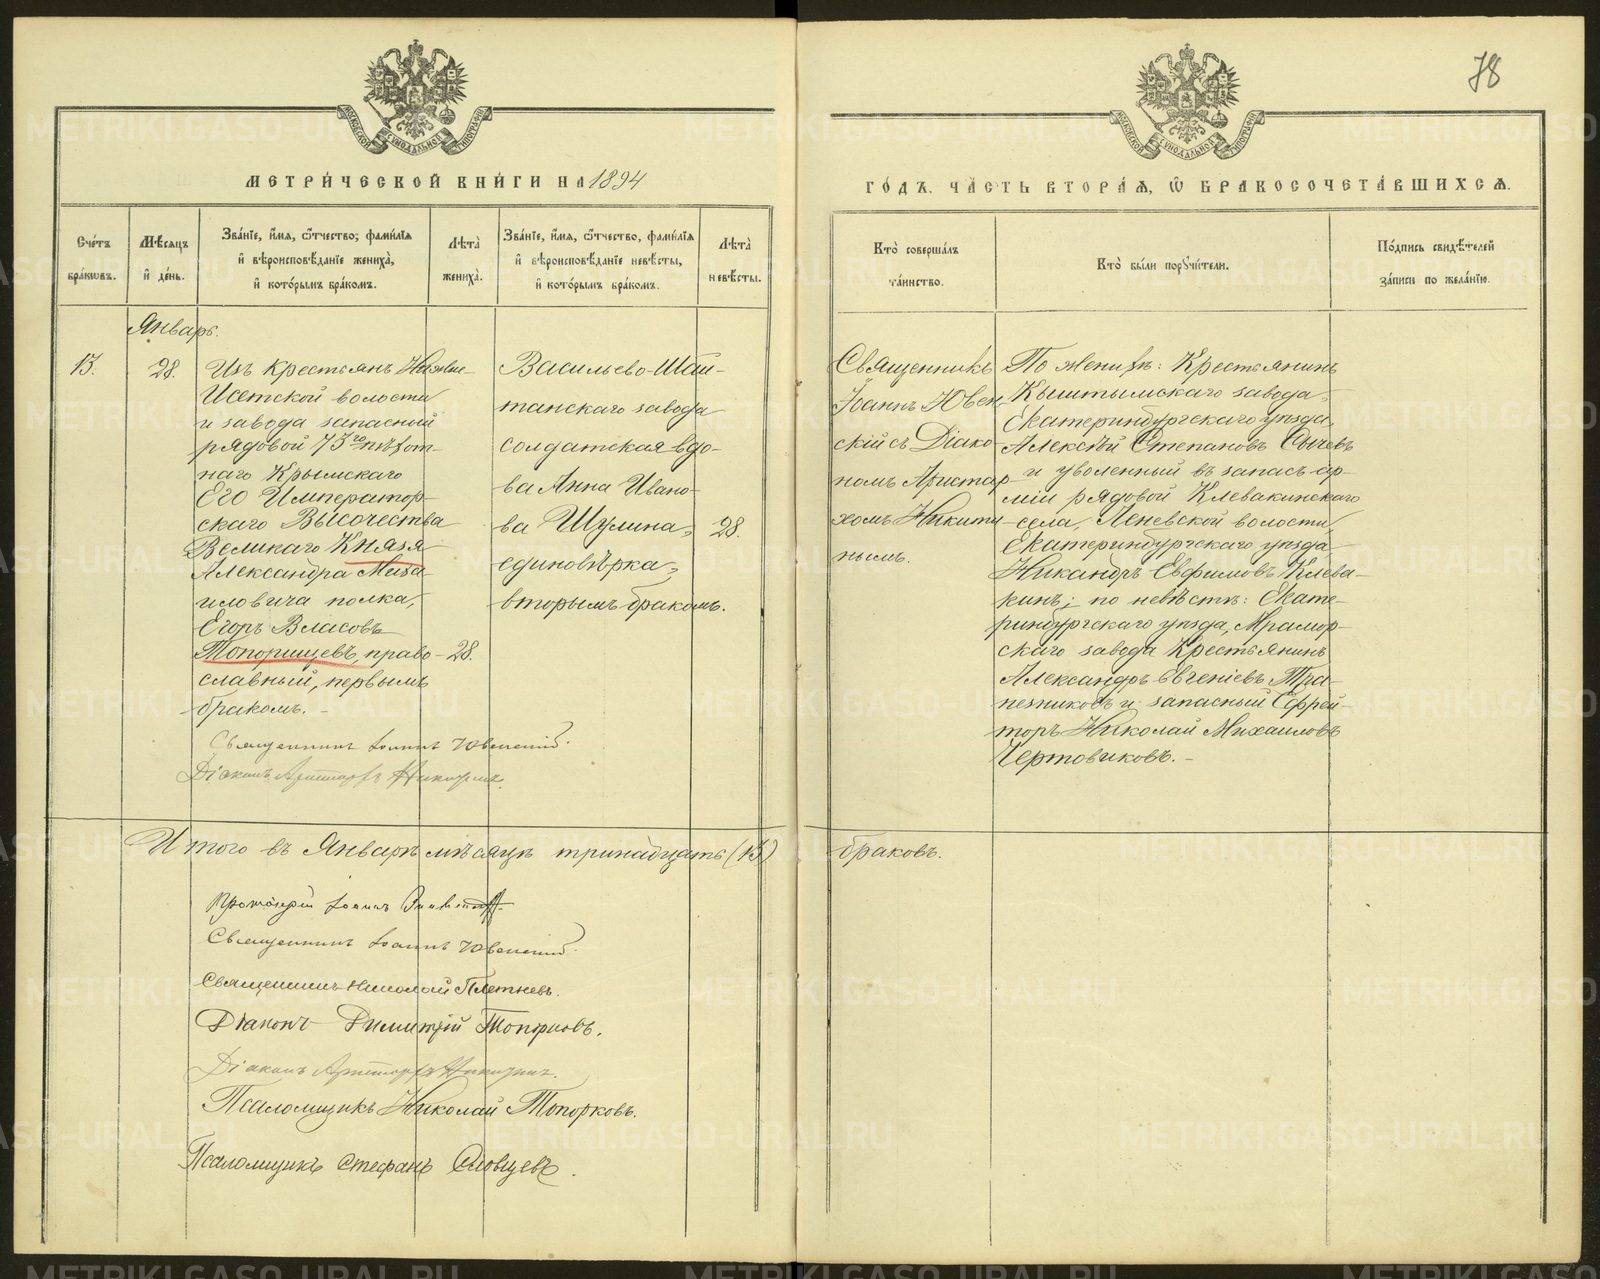 78
МОСКОВСКОЙ СѴНОДАЛЬНОЙ ТИПОГРАФІИ
МОСКОВСКОЙ СѴНОДАЛЬНОЙ ТИПОГРАФІИ
МЕТРИ́ЧЕСКОЙ КНИ́ГИ НА 1894
ГО́ДЪ, ЧА́СТЬ ВТОРА́Я, Ѡ҆ БРАКОСОЧЕТА́ВШИХСЯ.
Сче́тъ
бра́кѡвъ.
Мѣ́сяцъ
и҆ де́нь.
Зва́нїе, и҆́мя, ѻ҆́тчество, фами́лїя
и҆ вѣроисповѣ́данїе жениха̀,
и҆ кото́рымъ бра́комъ.
Лѣ́та
жениха̀.
Зва́нїе, и҆́мя, ѻ҆́тчество, фами́лїя
и҆ вѣроисповѣ́данїе невѣ́сты,
и҆ кото́рымъ бра́комъ.
Лѣ́та
невѣ́сты.
Кто̀ соверша́лъ
та́инство.
Кто̀ бы́ли порꙋчи́тели.
По́дпись свидѣ́телей
за́писи по жела́нїю.
Январь.
13.
28.
Изъ крестьянъ Нижне-
Исетской волости
и завода запасный
рядовой 73го пѣхот-
наго Крымскаго
Его Император-
скаго Высочества
Великаго Князя
Александра Миха-
иловича полка,
Егоръ Власовъ
Топорищевъ, право-
славный, первымъ
бракомъ.
28.
Васильево-Шай-
танскаго завода
солдатская вдо-
ва Анна Ивано-
ва Шулина,
единовѣрка,
вторымъ бракомъ.
28.
Священникъ
Іоаннъ Ювен
скій съ Діако-
номъ Аристар-
хомъ Никити
нымъ.
По женихѣ: Крестьянинъ
Кыштымскаго завода,
Екатеринбургскаго уѣзда,
Алексѣй Степановъ Сычевъ
и уволенный въ запасъ ар-
міи рядовой Клевакинскаго
села, Леневской волости,
Екатеринбургскаго уѣзда
Никандръ Евфимовъ Клева-
кинъ; по невѣстѣ: Екате-
ринбургскаго уѣзда, Мрамор-
скаго завода Крестьянинъ
Александръ Евгеніевъ Тра-
пезниковъ и запасный Ефрей-
торъ Николай Михаиловъ
Чертовиковъ.
Священникъ Іоаннъ Ювенскій.
Діаконъ Аристархъ Никитинъ.
Итого въ Январѣ мѣсяцѣ тринадцать (13)
браковъ.
Протоіерей Іоаннъ
Священникъ Іоаннъ Ювенскій.
Священникъ Николай Плетневъ.
Діаконъ Димитрій Топорковъ.
Діаконъ Аристархъ Никитинъ.
Псаломщикъ Николай Топорковъ.
Псаломщикъ Стефанъ Словцевъ.
METRIKI.GASO-URAL.RU